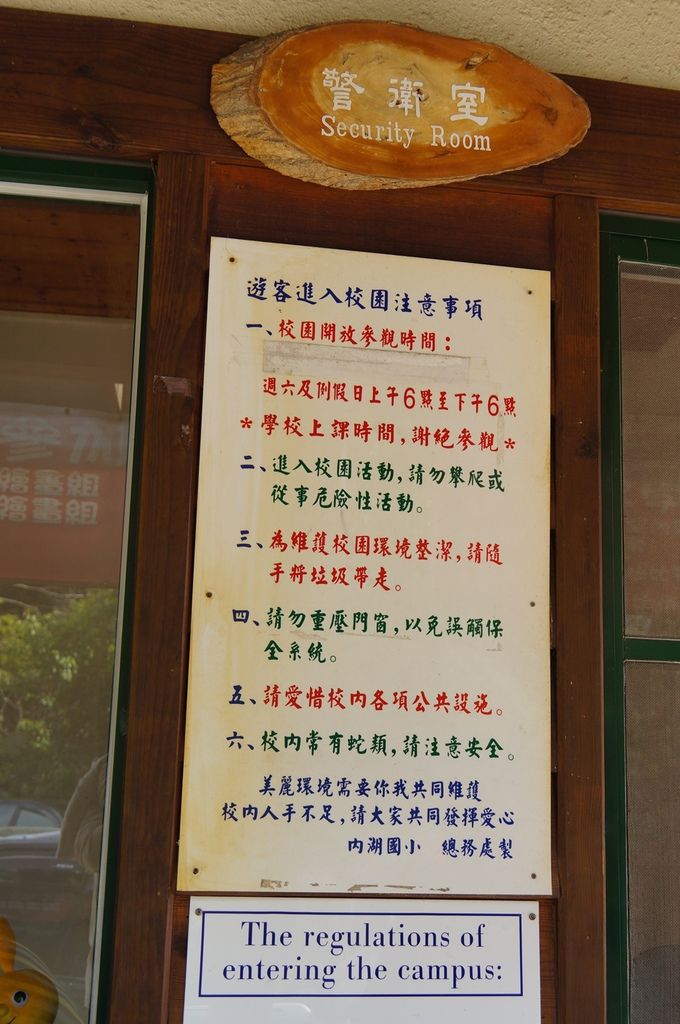 警衛室
Security Room
遊客進入校園注意事項
一、校園開放參觀時間：
週六及例假日上午6點至下午6點
*學校上課時間，謝絕參觀*
二、進入校園活動，請勿攀爬或
從事危險性活動。
三、為維護校園環境整潔，請隨
手將垃圾帶走。
四、請勿重壓門窗，以免誤觸保
全系統。
五、請愛惜校內各項公共設施。
六、校內常有蛇類，請注意安全。
美麗環境需要你我共同維護
校內人手不足，請大家共同發揮愛心
內湖國小 總務處製
The regulations of
entering the campus:
繪畫組
繪畫組